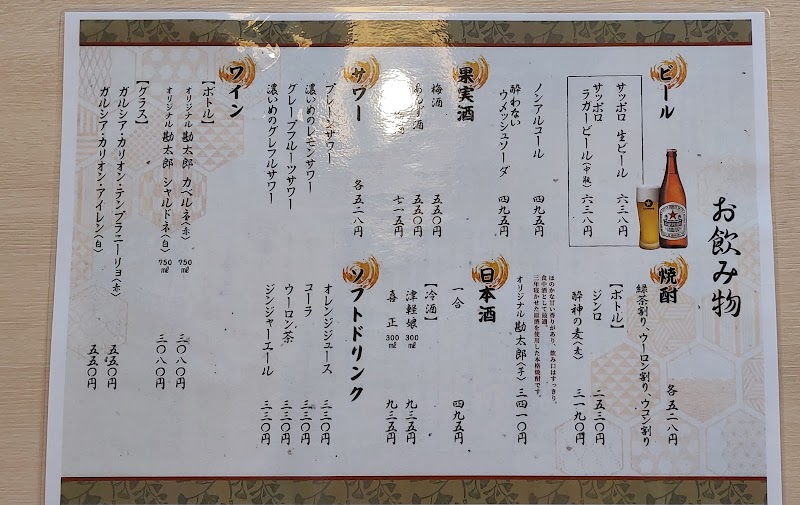 お飲み物
ビール
サッポロ 生ビール 六三八円
サッポロ
ラガービール(中瓶) 六三八円
ノンアルコール 四九五円
酔わない
ウメッシュソーダ 四九五円
果実酒
梅酒 五五〇円
酒 五五〇円
七一五円
サワー
プレーンサワー
濃いめのレモンサワー
グレープフルーツサワー
濃いめのグレフルサワー
各五二八円
ワイン
【ボトル】
オリジナル 勘太郎 カベルネ(赤) 750㎖ 三〇八〇円
オリジナル 勘太郎 シャルドネ(白) 750㎖ 三〇八〇円
【グラス】
ガルシア・カリオン・テンプラニーリョ(赤) 五五〇円
ガルシア・カリオン・アイレン(白) 五五〇円
焼酎
緑茶割り、ウーロン割り、ウコン割り
各五二八円
【ボトル】
ジンロ 二五三〇円
酔神の麦(麦) 三一九〇円
ほのかな甘い香りがあり、飲み口はすっきり。
食中酒として最適。
三年寝かせた原酒を使用した本格焼酎です。
オリジナル 勘太郎(芋) 三四一〇円
日本酒
一合 四九五円
【冷酒】
津軽娘 300㎖ 九三五円
喜正 300㎖ 九三五円
ソフトドリンク
オレンジジュース 三三〇円
コーラ 三三〇円
ウーロン茶 三三〇円
ジンジャーエール 三三〇円